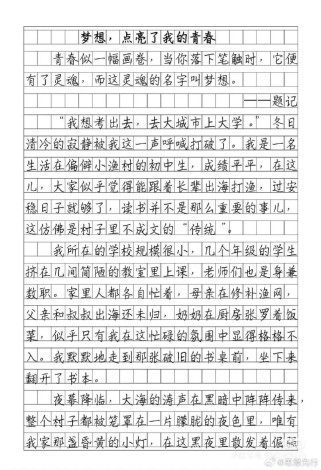 梦想，点亮了我的青春
青春似一幅画卷，当你落下笔触时，它便
有了灵魂，而这灵魂的名字叫梦想。
——题记
“我想考出去，去大城市上大学。”冬日
清冷的寂静被我这一声呼喊打破了。我是一名
生活在偏僻小渔村的初中生，成绩平平，在这
儿，大家似乎觉得能跟着长辈出海打渔，过安
稳日子就够了，读书并不是那么重要的事儿，
这仿佛是村子里不成文的“传统”。
我所在的学校规模很小，几个年级的学生
挤在几间简陋的教室里上课，老师们也是身兼
数职。家里人都各自忙着，母亲在修补渔网，
父亲和叔叔出海还未归，奶奶在厨房张罗着饭
菜，似乎只有我在这忙碌的氛围中显得格格不
入。我默默地走到那张破旧的书桌前，坐下来
翻开了书本。
夜幕降临，大海的涛声在黑暗中阵阵传来，
整个村子都被笼罩在一片朦胧的夜色里，唯有
我家那盏昏黄的小灯，在这黑夜里散发着倔